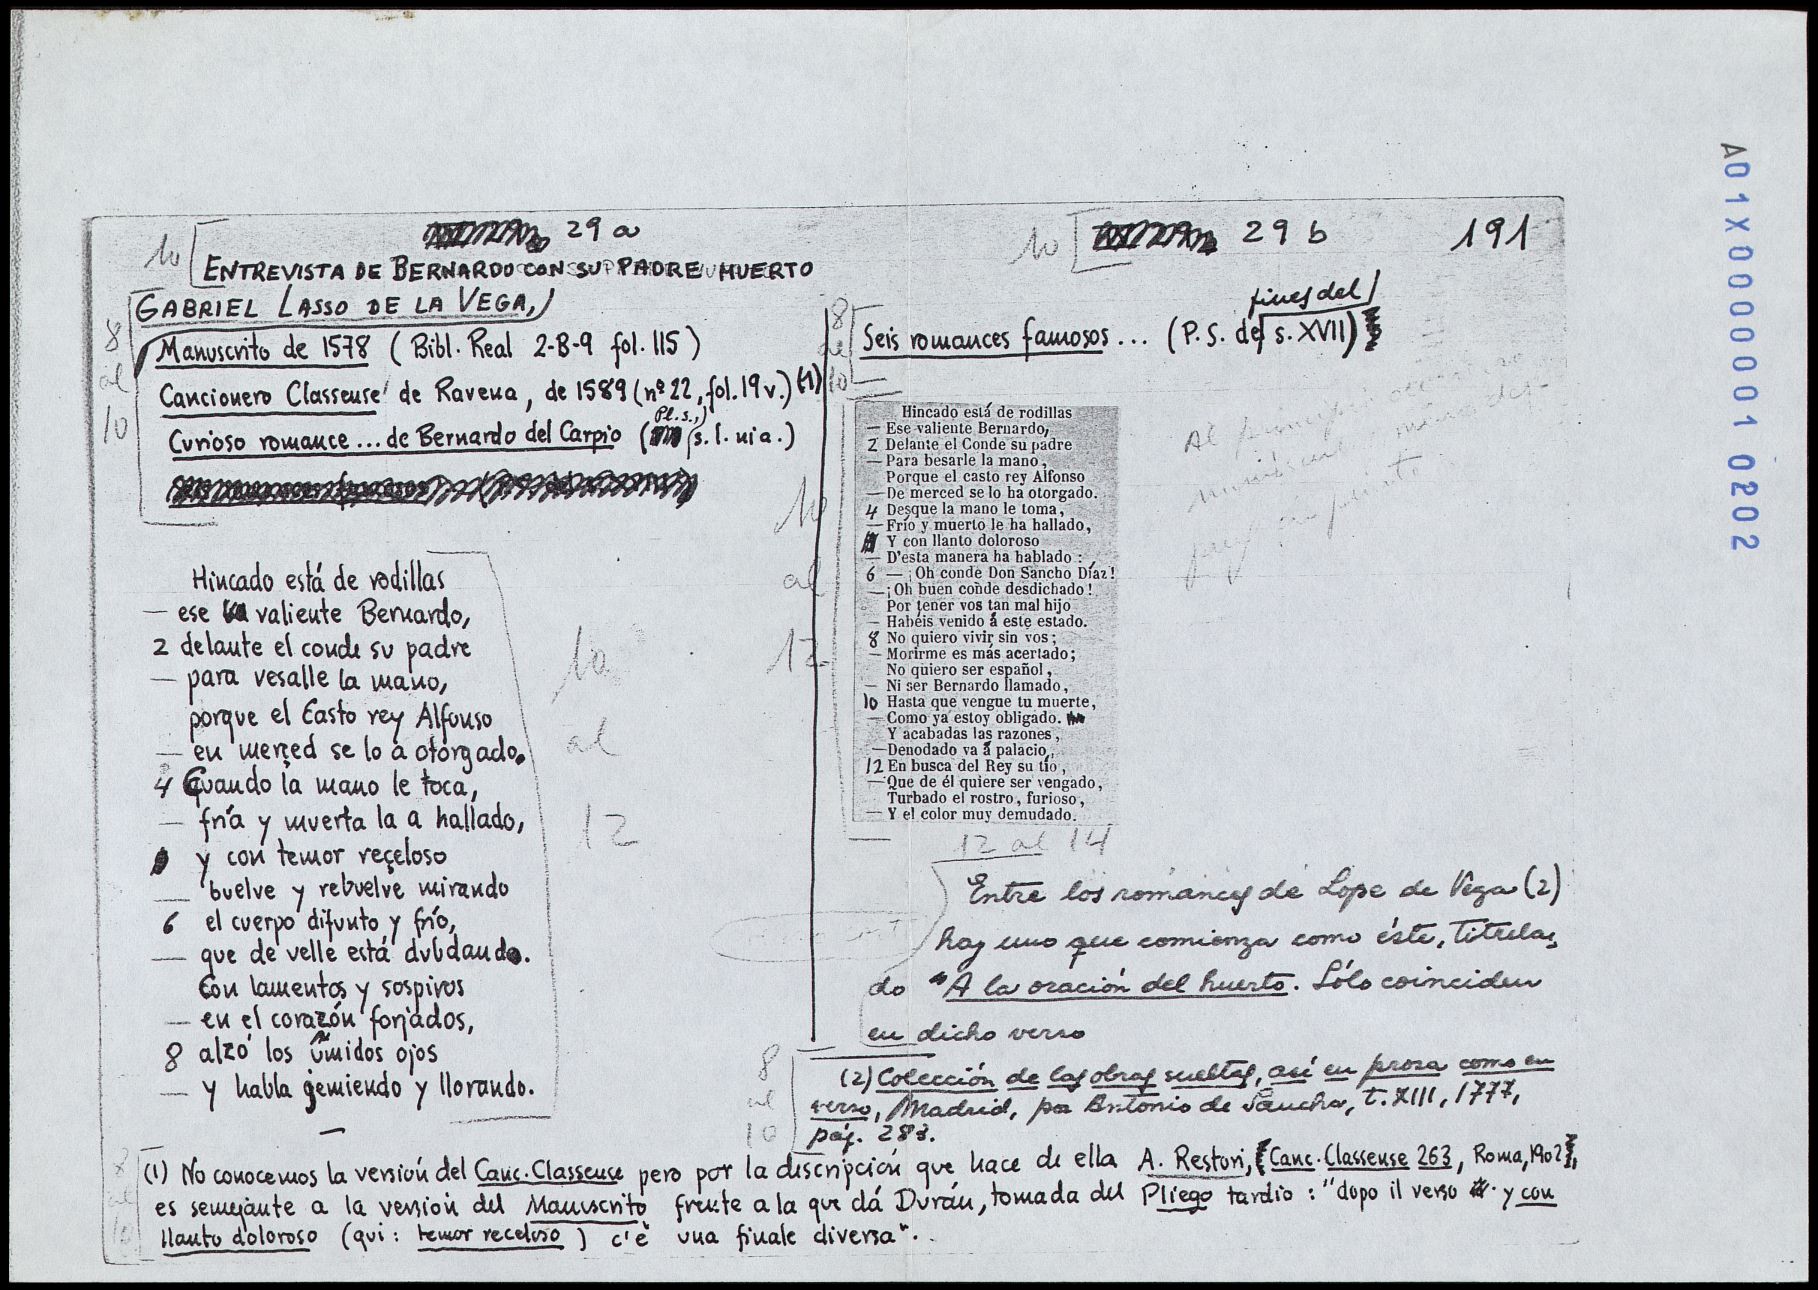 29 a
10
ENTREVISTA DE BERNARDO CON SU PADRE MUERTO
GABRIEL LASSO DE LA VEGA,
8 al 10
Manuscrito de 1578 (Bibl. Real 2-B-9 fol. 115)
Cancionero Classense de Ravena, de 1589 (nº 22, fol. 19 v.) (1)
Curioso romance... de Bernardo del Carpio (Pl. s., s. l. ni a.)
Hincado está de rodillas
— ese valiente Bernardo,
2 delante el conde su padre
— para vesalle la mano,
porque el Casto rey Alfonso
— en merçed se lo a otorgado.
4 Quando la mano le toca,
— fría y muerta la a hallado,
y con temor reçeloso
— buelve y rebuelve mirando
6 el cuerpo difunto y frío,
— que de velle está dubdando.
Con lamentos y sospiros
— en el corazón forjados,
8 alzó los úmidos ojos
— y habla gemiendo y llorando.
10
al
12
10
29 b
191
8
al
10
Seis romances famosos... (P.S. de fines del s. XVII)
10
al
12
Hincado está de rodillas
— Ese valiente Bernardo,
2 Delante el Conde su padre
— Para besarle la mano,
Porque el casto rey Alfonso
— De merced se lo ha otorgado.
4 Desque la mano le toma,
— Frio y muerto le ha hallado,
Y con llanto doloroso
— D'esta manera ha hablado:
6 — ¡Oh conde Don Sancho Díaz!
— ¡Oh buen conde desdichado!
Por tener vos tan mal hijo
— Habéis venido á este estado.
8 No quiero vivir sin vos;
— Morirme es más acertado;
No quiero ser español,
— Ni ser Bernardo llamado,
10 Hasta que vengue tu muerte,
— Como ya estoy obligado.
Y acabadas las razones,
— Denodado va á palacio,
12 En busca del Rey su tío,
— Que de él quiere ser vengado,
Turbado el rostro, furioso,
— Y el color muy demudado.
12 al 14
Entre los romances de Lope de Vega (2)
hay uno que comienza como éste, titula-
do "A la oración del huerto. Sólo coinciden
en dicho verso
8
al
10
(2) Colección de las obras sueltas, así en prosa como en
verso, Madrid, por Antonio de Sancha, t. XIII, 1777,
pág. 283.
8
al
10
(1) No conocemos la versión del Canc. Classense pero por la descripción que hace de ella A. Restori, [Canc. Classense 263, Roma, 1902],
es semejante a la versión del Manuscrito frente a la que dá Durán, tomada del Pliego tardío: "dopo il verso y con
llanto doloroso (qui: temor receloso) c'è una finale diversa".
A01X0000001 0202